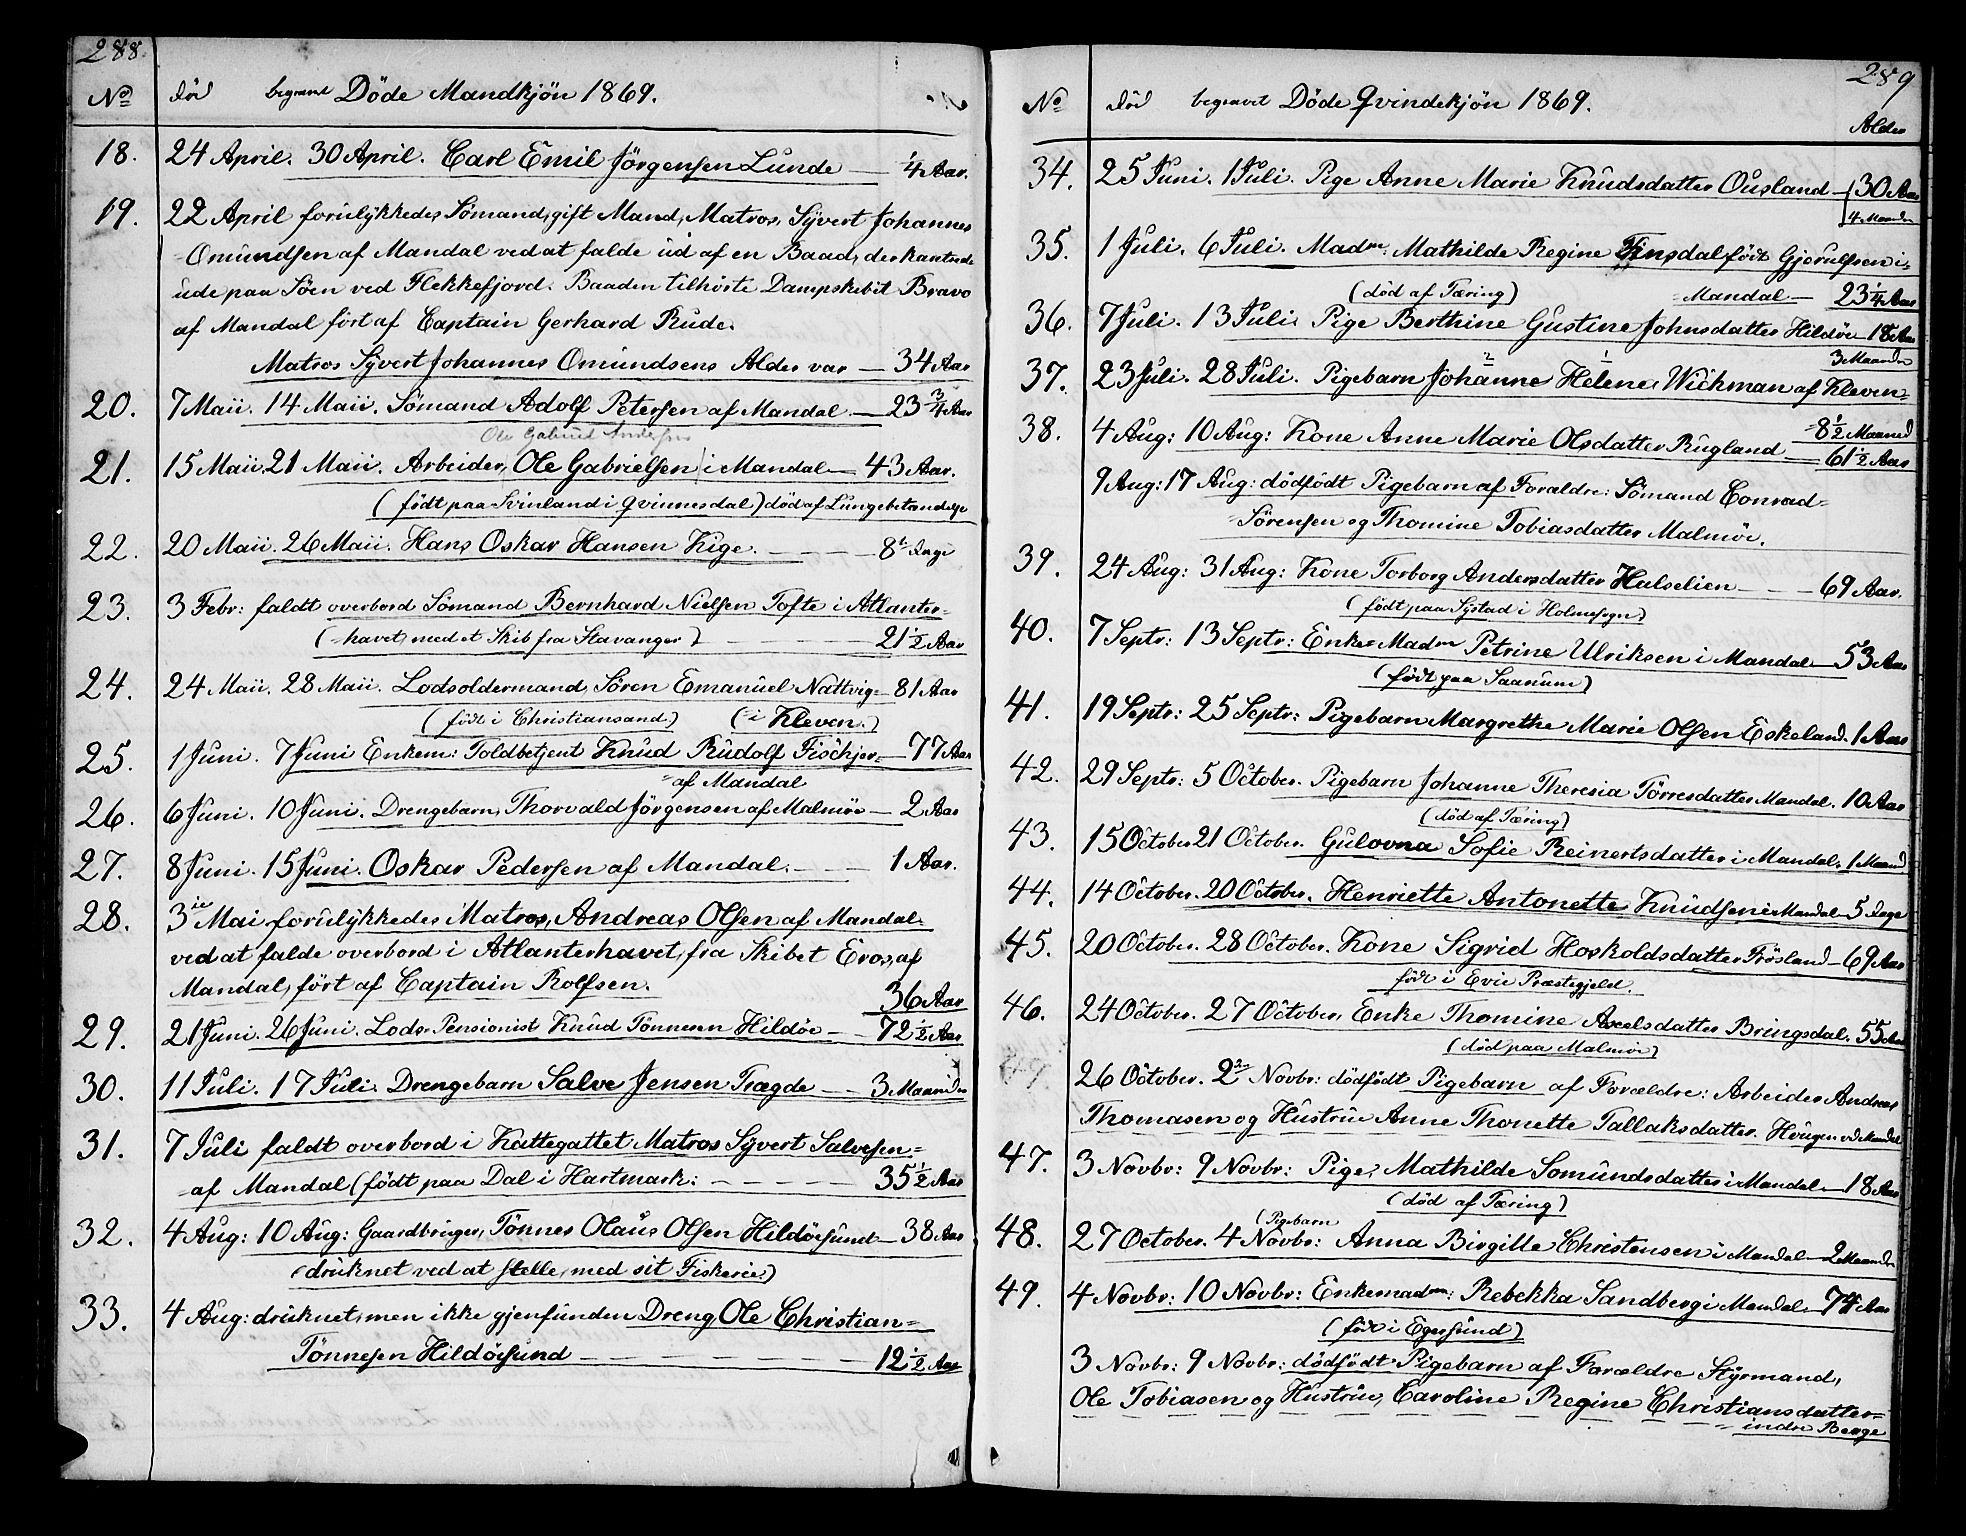 288.
No død begravet Döde Mandkjön 1869.
18. 24 April. 30 April. Carl Emil Jörgensen Lunde — 1/4 Aar.
19. 22 April forulykkedes Sömand, gift Mand, Matros, Syvert Johannes
Omundsen af Mandal ved at falde ud af en Baad, der kantrede
ude paa Söen ved Flekkefjord. Baaden tilhörte Dampskibet Bravo
af Mandal fört af Captain Gerhard Rude.
Matros Syvert Johannes Omundsens Alder var — 34 Aar
20. 7 Maii. 14 Maii. Sömand Adolf Petersen af Mandal. — 23 3/4 Aar
Ole Gabriel Andersen
21. 15 Maii. 21 Maii. Arbeider, Ole Gabrielsen i Mandal — 43 Aar.
(födt paa Svinland i Qvinnesdal) död af Lungebetændelse
22. 20 Maii. 26 Maii. Hans Oskar Hansen Kige. — 8te Dage
23. 3 Febr: faldt overbord Sömand Bernhard Nielsen Tofte i Atlanter=
(havet, med et Skib fra Stavanger) 21 1/2 Aar
24. 24 Maii. 28 Maii. Lodsoldermand, Sören Emanuel Nattvig = 81 Aar
(födt i Christiansand.) (= i Kleven.)
25. 1 Juni. 7 Juni Enkem: Toldbetjent Knud Rudolf Fischjer = 77 Aar
= af Mandal
26. 6 Juni. 10 Juni. Drengebarn, Thorvald Jörgensen af Malmöe — 2 Aar
27. 8 Juni. 15 Juni. Oskar Pedersen af Mandal. — 1 Aar.
28. 3ie Mai forulykkedes Matros, Andreas Olsen af Mandal.
ved at falde overbord i Atlanterhavet, fra Skibet Eros, af
Mandal, fört af Captain Rolfsen. 36 Aar
29. 21 Juni. 26 Juni. Lods-Pensionist Knud Tönnesen Hildöe — 72 1/2 Aar
30. 11 Juli. 17 Juli. Drengebarn Salve Jensen Trægde — 3 Maaneder
31. 7 Juli faldt overbord i Kattegattet Matros Syvert Salvesen =
= af Mandal (födt paa Dal i Hartmark: — 35 1/2 Aar
32. 4 Aug: 10 Aug: Gaardbruger, Tönnes Olaus Olsen Hildöesund — 38 Aar
(druknet ved at stelle, med sit Fiskerie.)
33. 4 Aug: druknet, men ikke gjenfunden Dreng, Ole Christian=
Tönnesen Hildöesund — 12 1/2 Aar
289
No död begravet Döde Qvindekjön 1869.
Alder
34. 25 Juni. 1 Juli. Pige Anne Marie Knudsdatter Ousland — 30 Aar
4 Maaneder
35. 1 Juli. 6 Juli. Madm: Mathilde Regine Finsdal födt Gjerulfsen i=
(död af Tæring) = Mandal — 23 1/4 Aar
36. 7 Juli. 13 Juli. Pige Berthine Gustine Johnsdatter Hildöe — 18 Aar
3 Maaneder
37. 23 Juli. 28 Juli. Pigebarn Johanne 2 Helene 1 Wichman af Kleven=
= 8 1/2 Maaned
38. 4 Aug: 10 Aug: Kone Anne Marie Olsdatter Rugland — 61 1/2 Aar
9 Aug: 17 Aug: dödfödt Pigebarn af Foraldre: Sömand Conrad=
= Sörensen og Thomine Tobiasdatter Malmöe.
39. 24 Aug: 31 Aug: Kone Torborg Andersdatter Hulselien — 69 Aar.
(födt paa Systad i Holmesogn)
40. 7 Septr: 13 Septr: Enke Madm Petrine Ulriksen i Mandal — 53 Aar
(födt paa Saanum)
41. 19 Septr: 25 Septr: Pigebarn Margrethe Marie Olsen Eskeland. 1 Aar
42. 29 Septr: 5 October. Pigebarn Johanne Theresia Törresdatter Mandal. 10 Aar
(död af Tæring)
43. 15 October 21 October. Gulovna Sofie Reinertsdatter i Mandal. 1 Maaned
44. 14 October. 20 October. Henriette Antonette Knudsen i Mandal — 5 Dage
45. 20 October. 28 October. Kone Sigrid Hoskoldsdatter Frösland — 69 Aar
födt i Evie Præstegjeld.
46. 24 October. 27 October. Enke Thomine Axelsdatter Bringsdal. 55 Aar
(död paa Malmöe)
26 October. 2den Novbr: dödfödt Pigebarn af Forældre: Arbeider Andreas
Thomasen og Hustrue Anne Thonette Tallaksdatter. Hougen v Mandal
47. 3 Novbr: 9 Novbr: Pige, Mathilde Somundsdatter i Mandal — 18 Aar
(död af Tæring)
(Pigebarn
48. 27 October. 4 Novbr: Anna Birgitte Christensen i Mandal — 2 Maaneder
49. 4 Novbr: 10 Novbr: Enkemadm: Rebekka Sandberg i Mandal. 74 Aar
(födt i Egersund)
3 Novbr: 9 Novbr: dödfödt Pigebarn af Forældre Styrmand,
Ole Tobiasen og Hustrue, Caroline Regine Christiansdatter=
= indre Berge